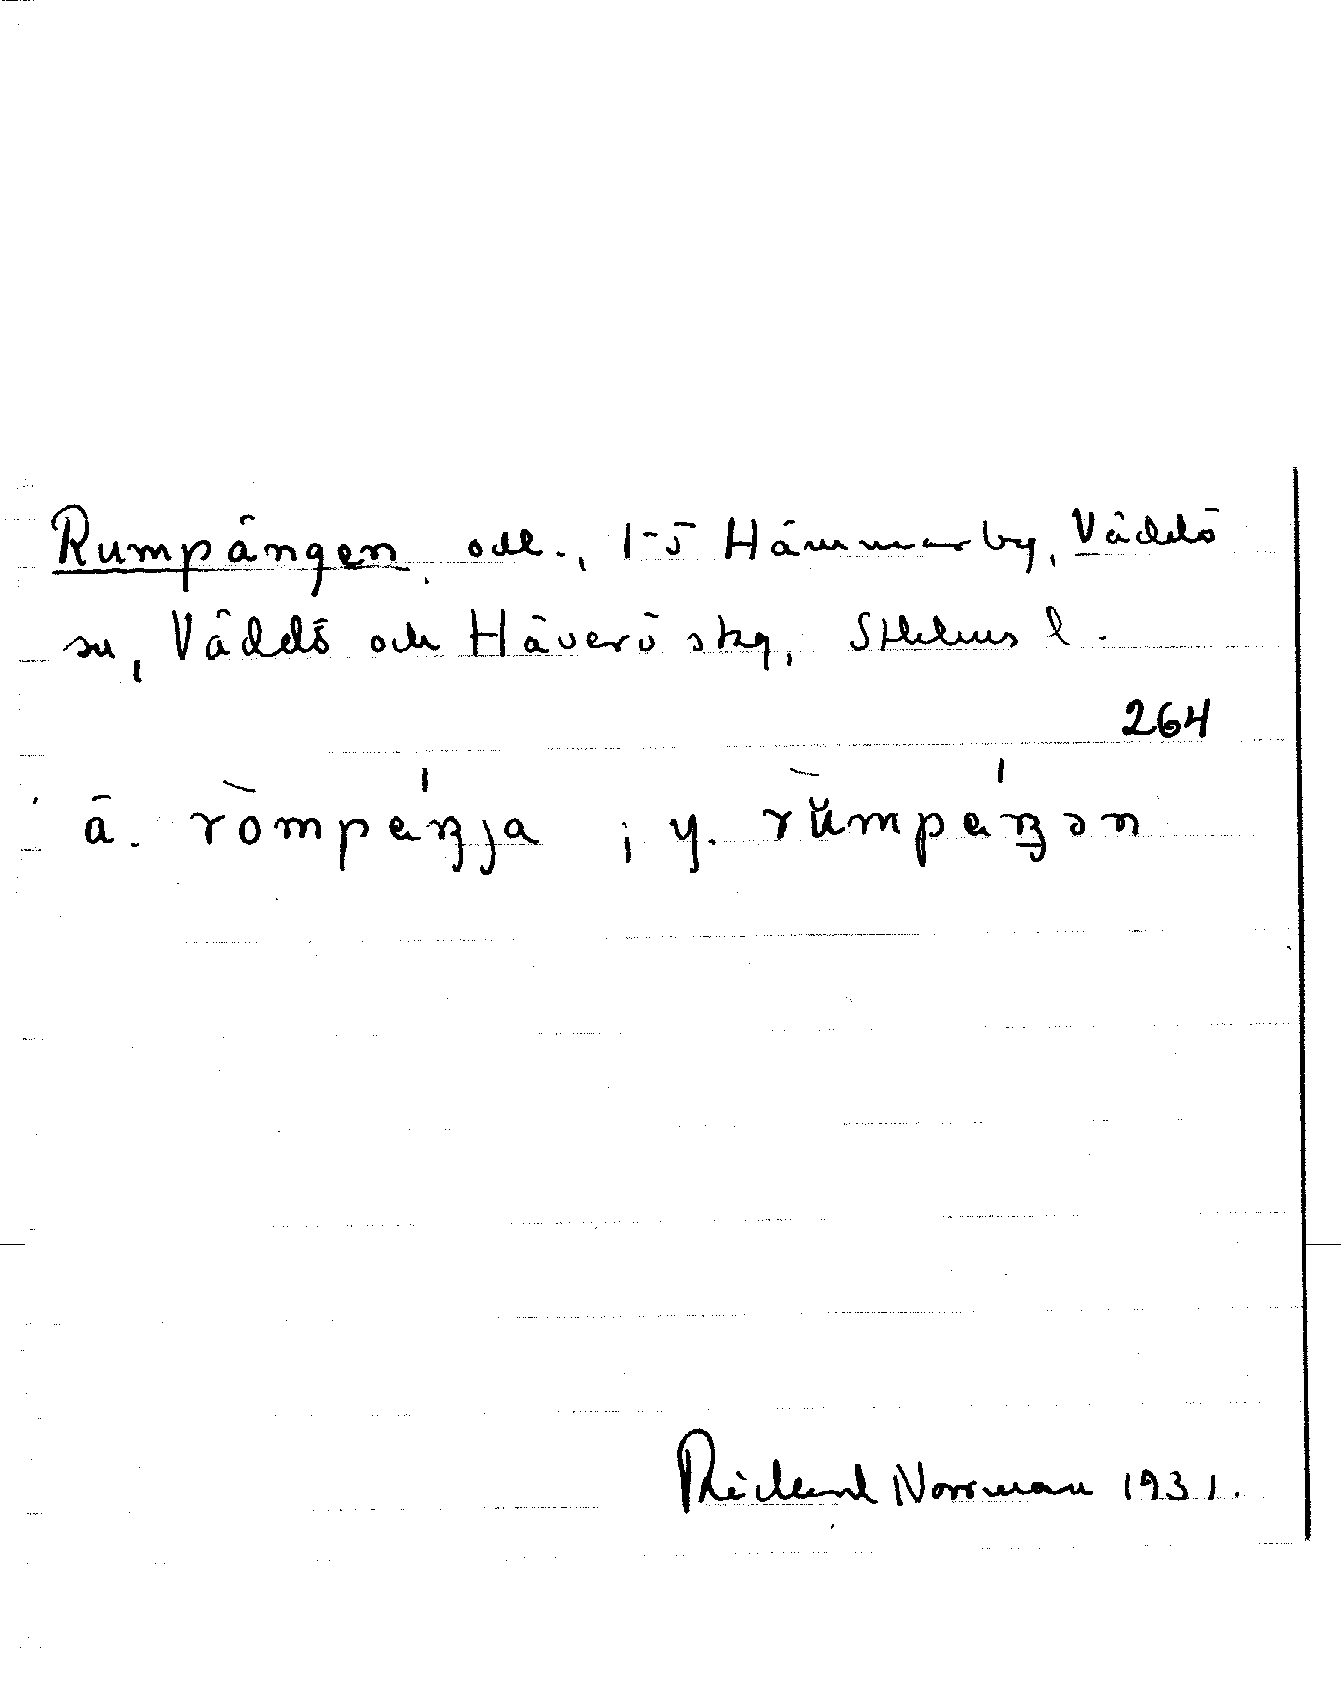 Rumpängen, odl., 1-5 Hämmarby, Väddö
sn, Väddö och Häverö skg, Sthlms l.
264
ä. ròmpeŋja ; y. rŭmpeŋən
Rickard Norrman 1931.